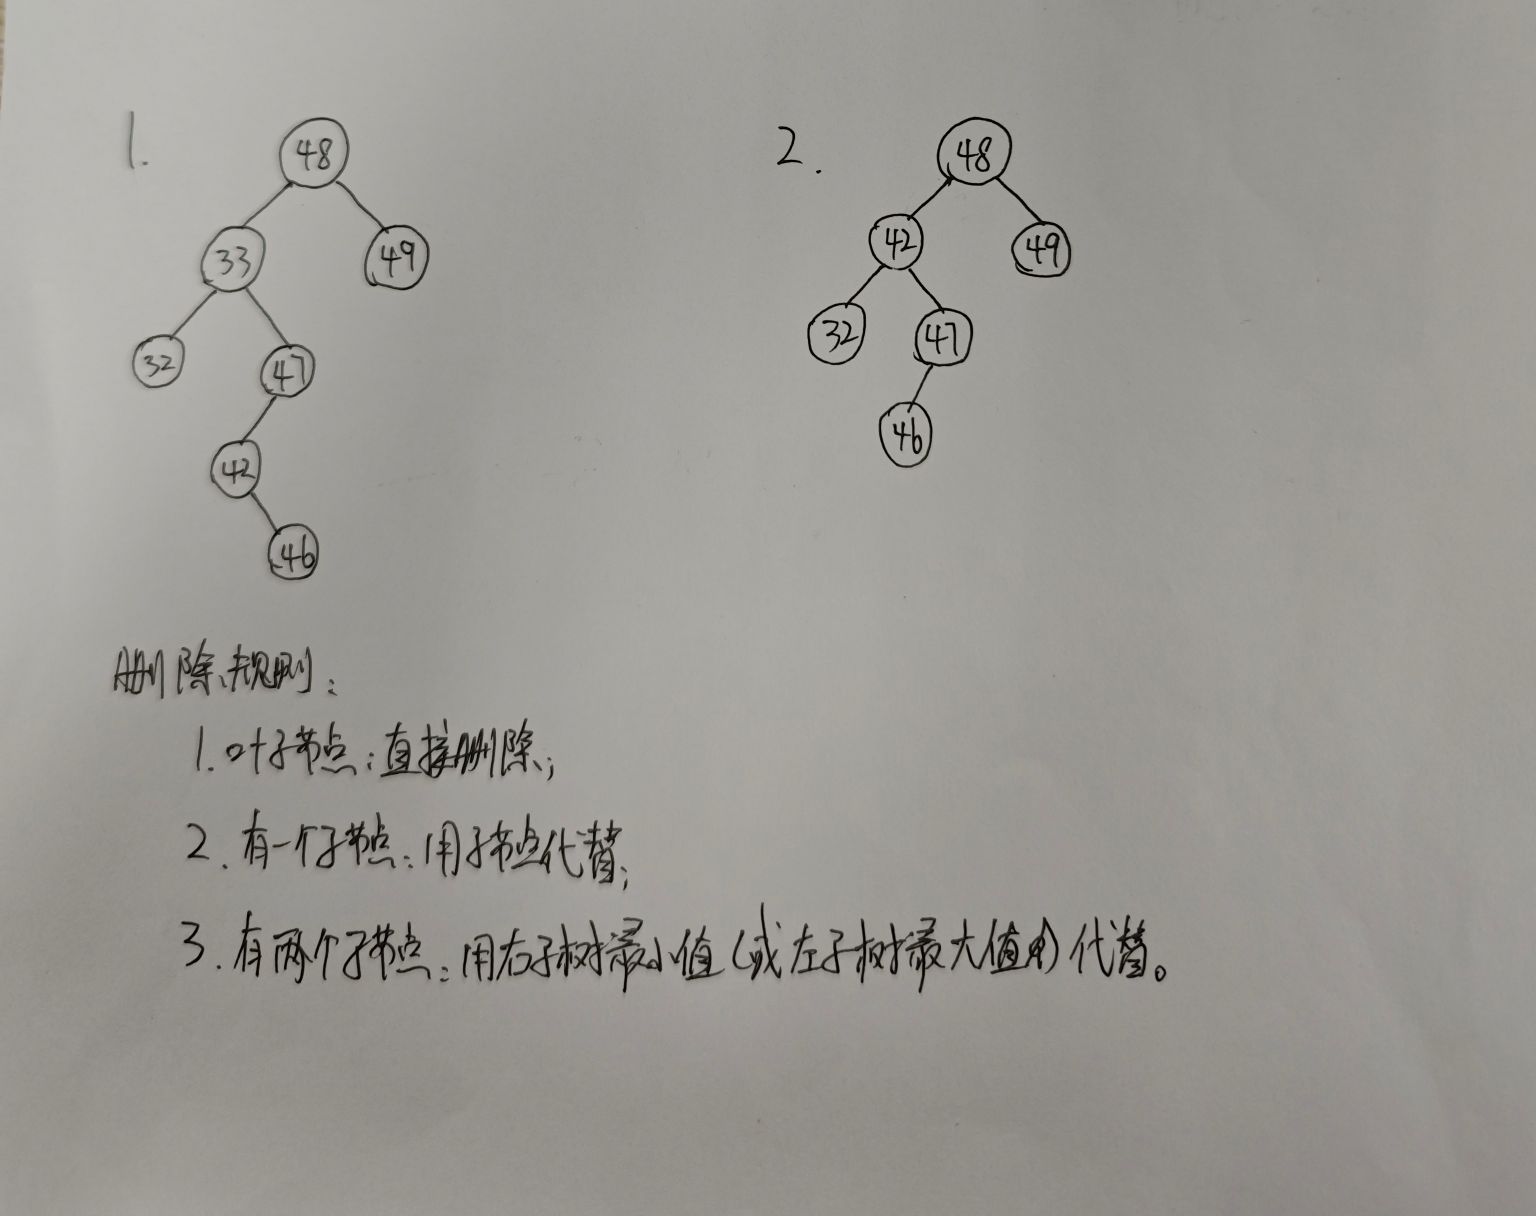 1.
48
33
49
32
47
42
46
2.
48
42
49
32
47
46
删除规则：
1.叶子节点：直接删除；
2.有一个子节点：用子节点代替；
3.有两个子节点：用右子树最小值（或左子树最大值）代替。